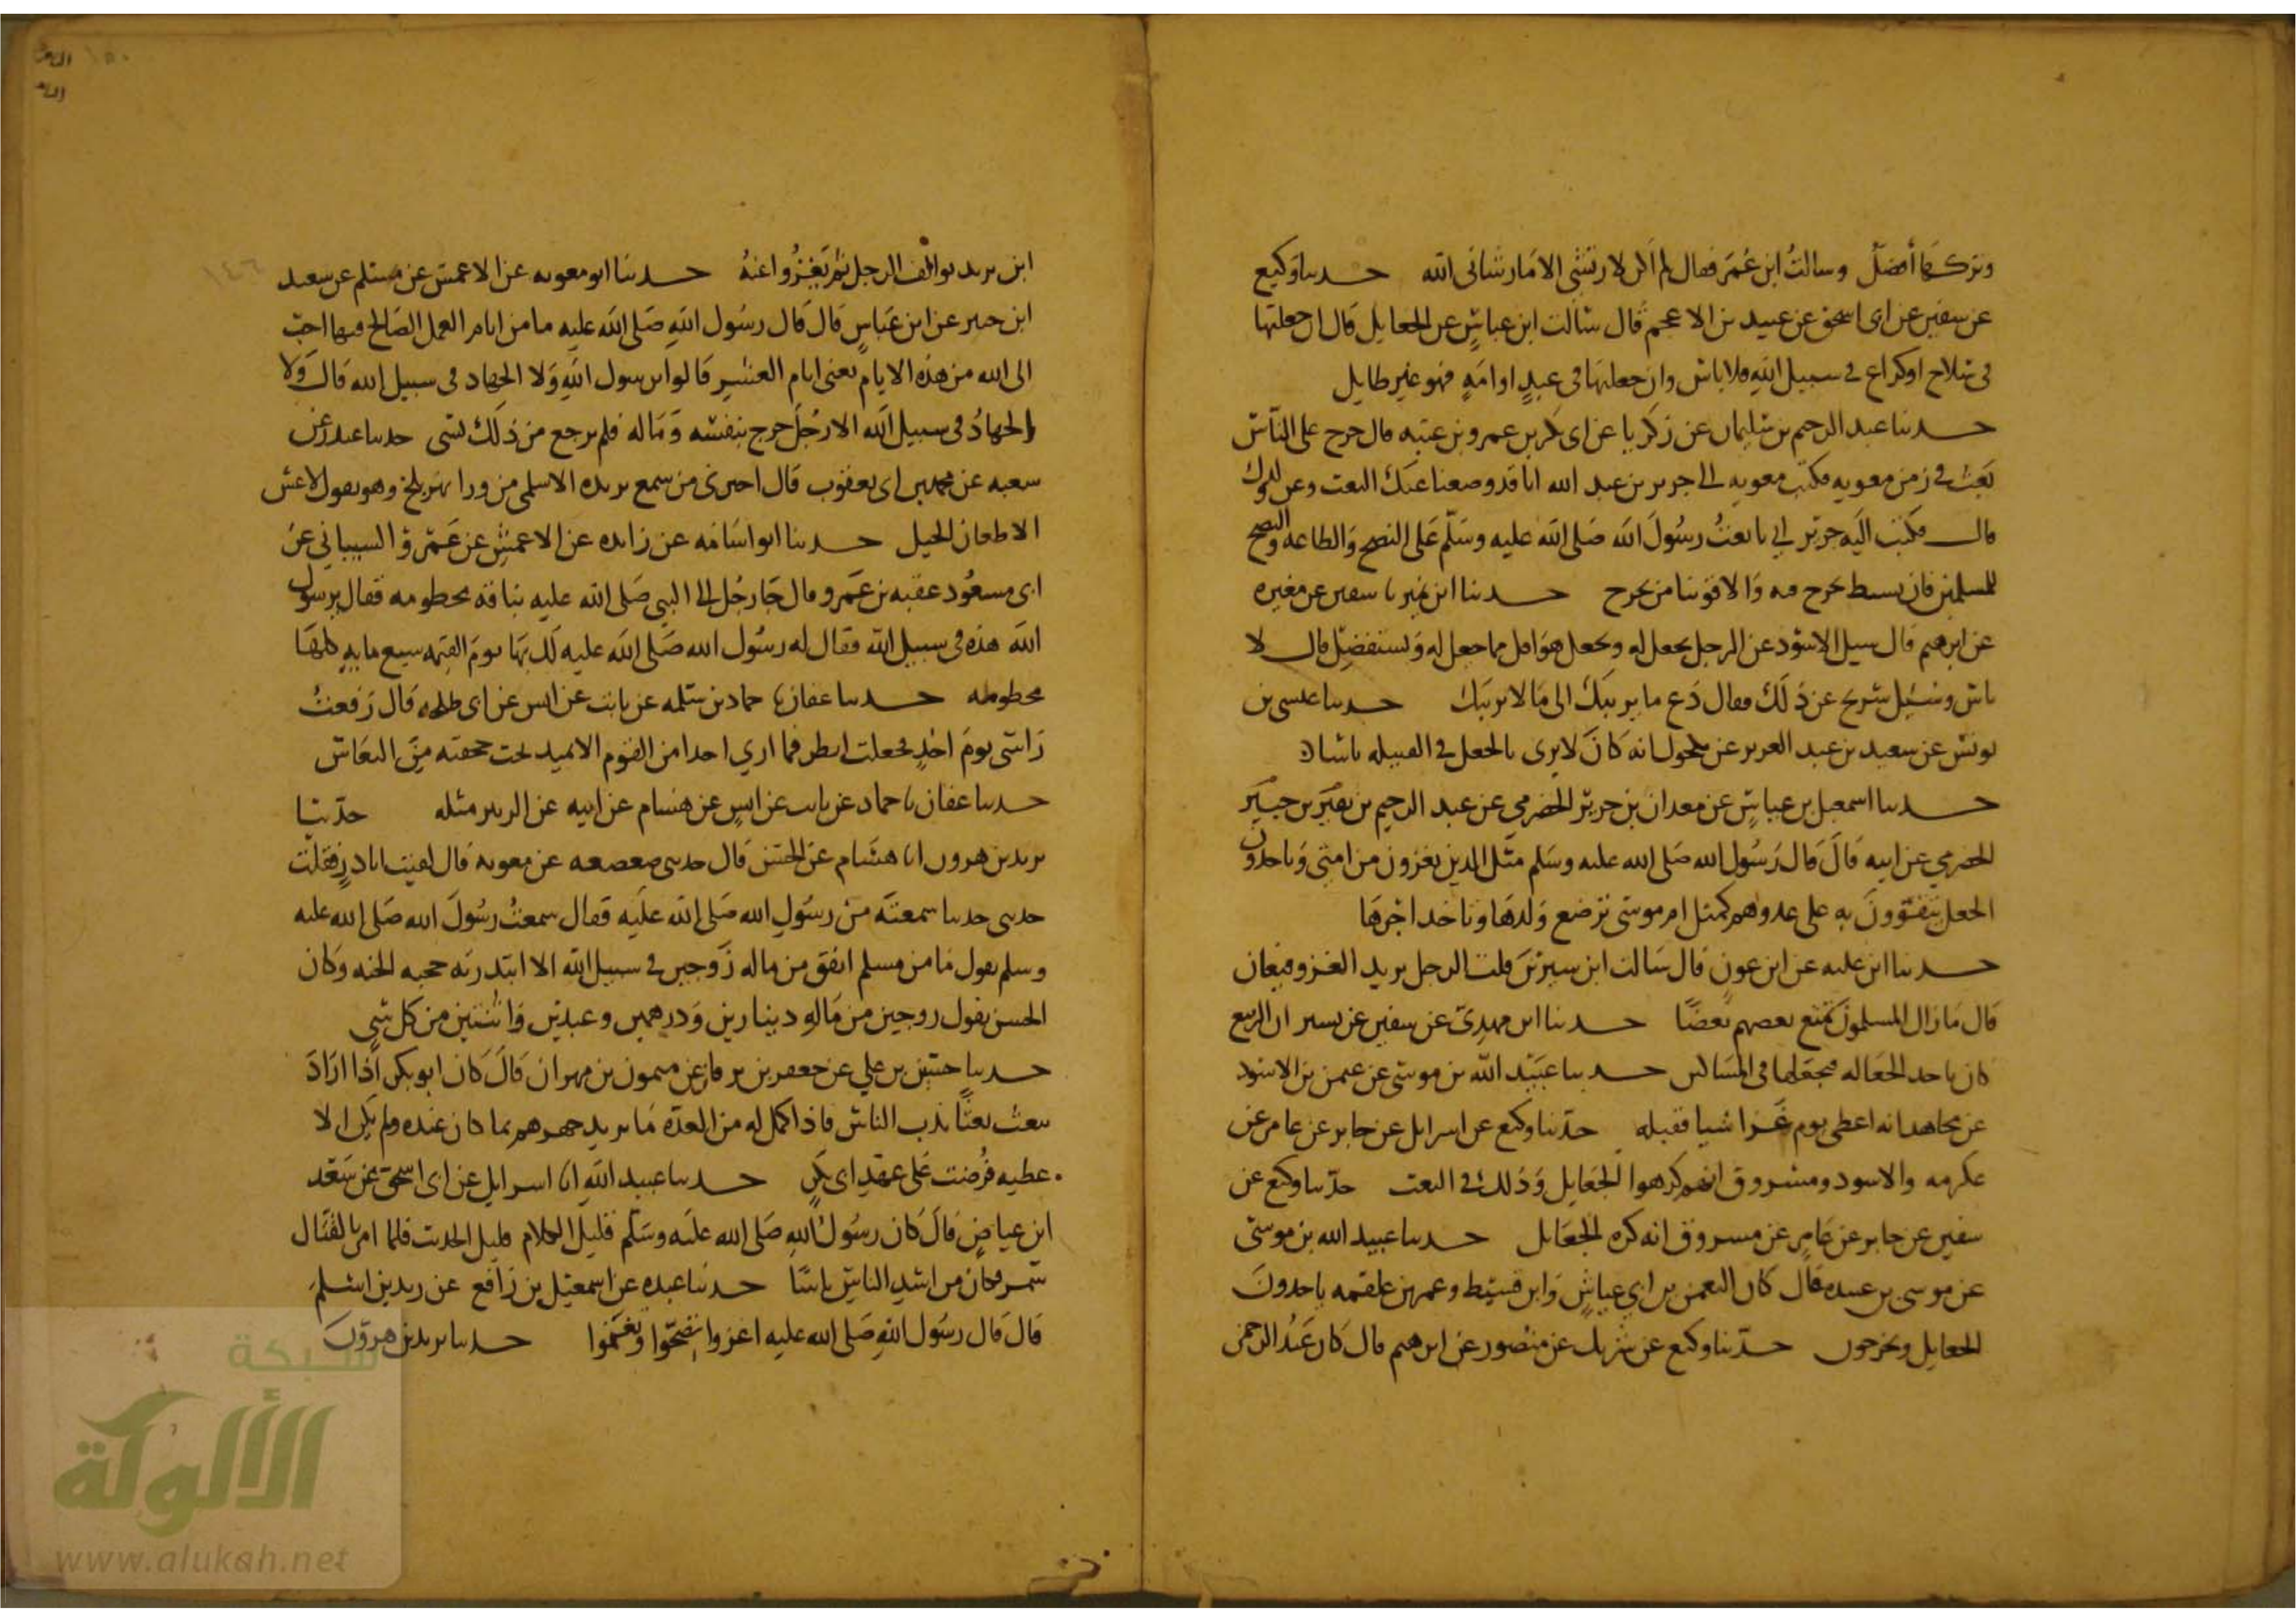 وتركها أفضل وسالتُ ابن عُمَر فقال لم اكن لارتشي الا مارشاني الله حدثنا وكيع
عن سفين عن ابى اسحق عن عبيد بن الاعجم قال سالت ابن عباسٍ عن الجعايل قال ان جعلتها
فى سلاح اوكراع فى سبيل الله فلا باس وان جعلتها فى عبدٍ او امةٍ فهو غير طايل
حدثنا عبد الرحيم بن سليمان عن زكريا عن ابى بكر بن عمرو بن عتبه قال خرج على الناس
بَعثُ في زمن معويه فكتب معويه الى جرير بن عبد الله انا قد وضعنا عنك البعث وعن ولدك
قال فكتب اليه جرير اني بايعتُ رسُولَ الله صَلى الله عليه وسَلّم عَلى النصح وَالطاعه والنصح
للمسلمين فان ينسط نخرج فيه وَالا قوينا من يخرج حدثنا ابن نمير نا سفين عن مغيره
عن ابرهيم قال سيل الاسود عن الرجل يجعل له ويجعل هوَ اقل مما جعل له وَيستفضِل قال لا
باس وسُئِل شريح عن ذلك فقال دَع ما يريبَكَ الى مَا لا يريبَك حدثنا عيسى بن
يونس عن سعيد بن عبد العزيز عن مكحول انه كانَ لا يرى بالجعل في القبيله باسا
حدثنا اسمعيل بن عياشٍ عن معدان بن حدير الحضرمي عن عبد الرحيم بن نفير بن جبير
الحضرمي عن ابيه قالَ قال رَسُول الله صَلى الله عليه وسَلم مثل الذين يغزون من امتي وَياخذون
الجعل يتقوونَ به على عدوهم كمثل ام موسى ترضع وَلدهَا وتاخذ اجرهَا
حدثنا ابن عليه عن ابن عونٍ قال سَالت ابن سيرين قلت الرجل يريد الغزو فيعان
قال مَا زال المسلمون يمتع بعضهم بَعضًا حدثنا ابن مهديّ عن سفين عن نسير ان الربيع
كان ياخذ الجعَاله فيجعَلها فى المسَاكين حدثنا عبيد الله بن موسى عن عثمن بن الاسود
عن مجاهد انه اعطى يوم غزا شيا فقبله حدّثنا وكيع عن اسرايل عن جابر عن عامر عن
عكرمه والاسود ومسروق انهم كرهوا الجعَايل وَذلك فى البعث حدّثنا وكيع عن
سفين عن جابر عن عَامرٍ عن مسروق انه كره الجعَايل حدثنا عبيد الله بن موسى
عن موسى بن عبيده قال كان النعمن بن ابي عياشٍ وَابن قسيط وعمر بن علقمه ياخذونَ
الجعايل ويخرجون حدّثنا وكيع عن شريك عن منصُور عن ابرهيم قال كان عَبدُ الرحمن
ابن يزيد الرجل ثم يَغزُوا عنهُ حدثنا ابو معويه عن الاعمش عن مسلم عن سعيد
ابن جبير عن ابن عَباسٍ قال قال رسُول الله صَلى الله عليه ما من ايام العمل الصَالح فيها احبّ
الى الله من هذه الايام يعنى ايام العشر قالوا يرسول الله وَلا الجهاد فى سبيل الله قال وَلا
الجهادُ فى سبيل الله الا رجُل خرج بنفسه وَمَاله فلم يرجع من ذلك بشى حدثنا غندر عن
سعبه عن محمد بن ابى يعقوب قال اخبرنى من سمع بريده الاسلمى من ورا نهر بلخ وهو يقول لا عيش
الا طعان الخيل حدثنا ابو اسَامَه عن زايده عن الاعمش عن عَمرو السيباني عن
ابى مسعُود عقبه بن عَمرو قال جَا رجُل الى النبى صَلى الله عليه بناقه مخطومه فقال يرسول
الله هذه فى سبيل الله فقال له رسُول الله صَلى الله عليه لَك بهَا يومَ القيمه سبع مايهٍ كلهَا
مخطومه حدثنا عفان نا حماد بن سَلمه عن ثابت عن انس عن ابى طلحه قال رَفعت
رَاسى يومَ احدٍ فجعلت انظر فما اري احدا من القوم الا يميد تحت حجفته مِن النعَاس
حدثنا عفان نا حماد عن ثابت عن انسٍ عن هشام عن ابيه عن الزبير مثله حدّثنا
يزيد بن هرون انا هشَام عن الحسَن قال حدثنى صعصعه عن معويه قال لقيت ابا ذرٍ فقلت
حدثنى حديثا سمعتَه من رسُولِ الله صَلى الله عليه فقال سمعتُ رسُولَ الله صَلى الله عليه
وسلم يقول مَا من مسلم انفق من ماله زَوجين فى سبيل الله الا ابتدرته حجبه الجنه وَكان
الحسن يقول زوجين من مَالهِ دينارين وَدرهمين وعبدين وَاثنتين من كل شى
حدثنا حسَين بن علي عن جعفر بن برقان عن ميمون بن مهران قالَ كان ابو بكر اذا ارَادَ
يبعث بعثًا ندب الناس فاذا كمل له من العدّه مَا يريد جهزهم بما كان عنده ولم يكن الا
عطيه فُرضت عَلى عهدِ ابى بكر حدثنا عبيد الله انا اسرايل عن ابى اسحق عن سَعد
ابن عياضٍ قالَ كان رسُولُ اللهِ صَلى الله عليه وسَلم قليل الكلام قليل الحديث فلما امر بالقتال
شمر فكان من اشدِ الناسِ باسًا حدثنا عبده عن اسمعيل بن رَافع عن زيد بن اسلمَ
قالَ قال رسُول اللهِ صَلى الله عليه اغزوا تصحّوا وتغنموا حدثنا يزيد بن هرونَ
شبكة
الألوكة
www.alukah.net